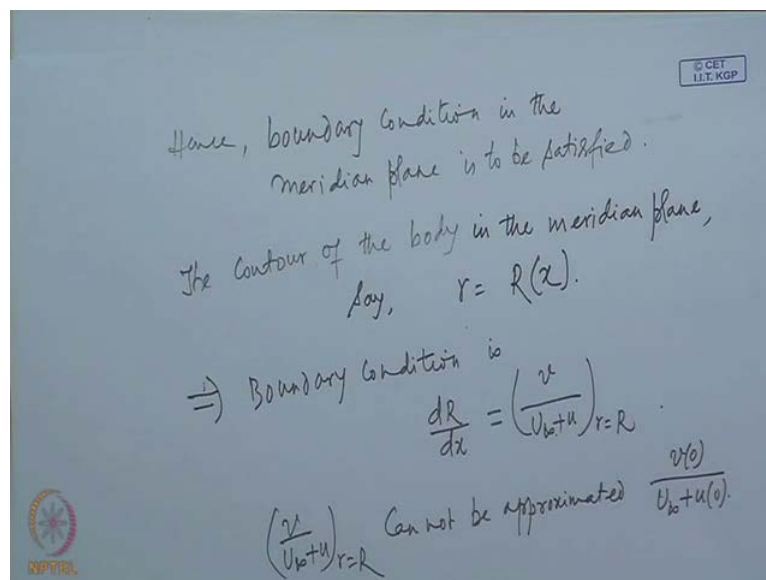 © CET
I.I.T. KGP
Hence, boundary condition in the
meridian plane is to be satisfied.
The contour of the body in the meridian plane,
say, r = R(x).
⇒) Boundary condition is
dR/dx = (v/(U∞+u))r=R .
(v/(U∞+u))r=R Can not be approximated v(0)/(U∞+u(0)).
NPTEL